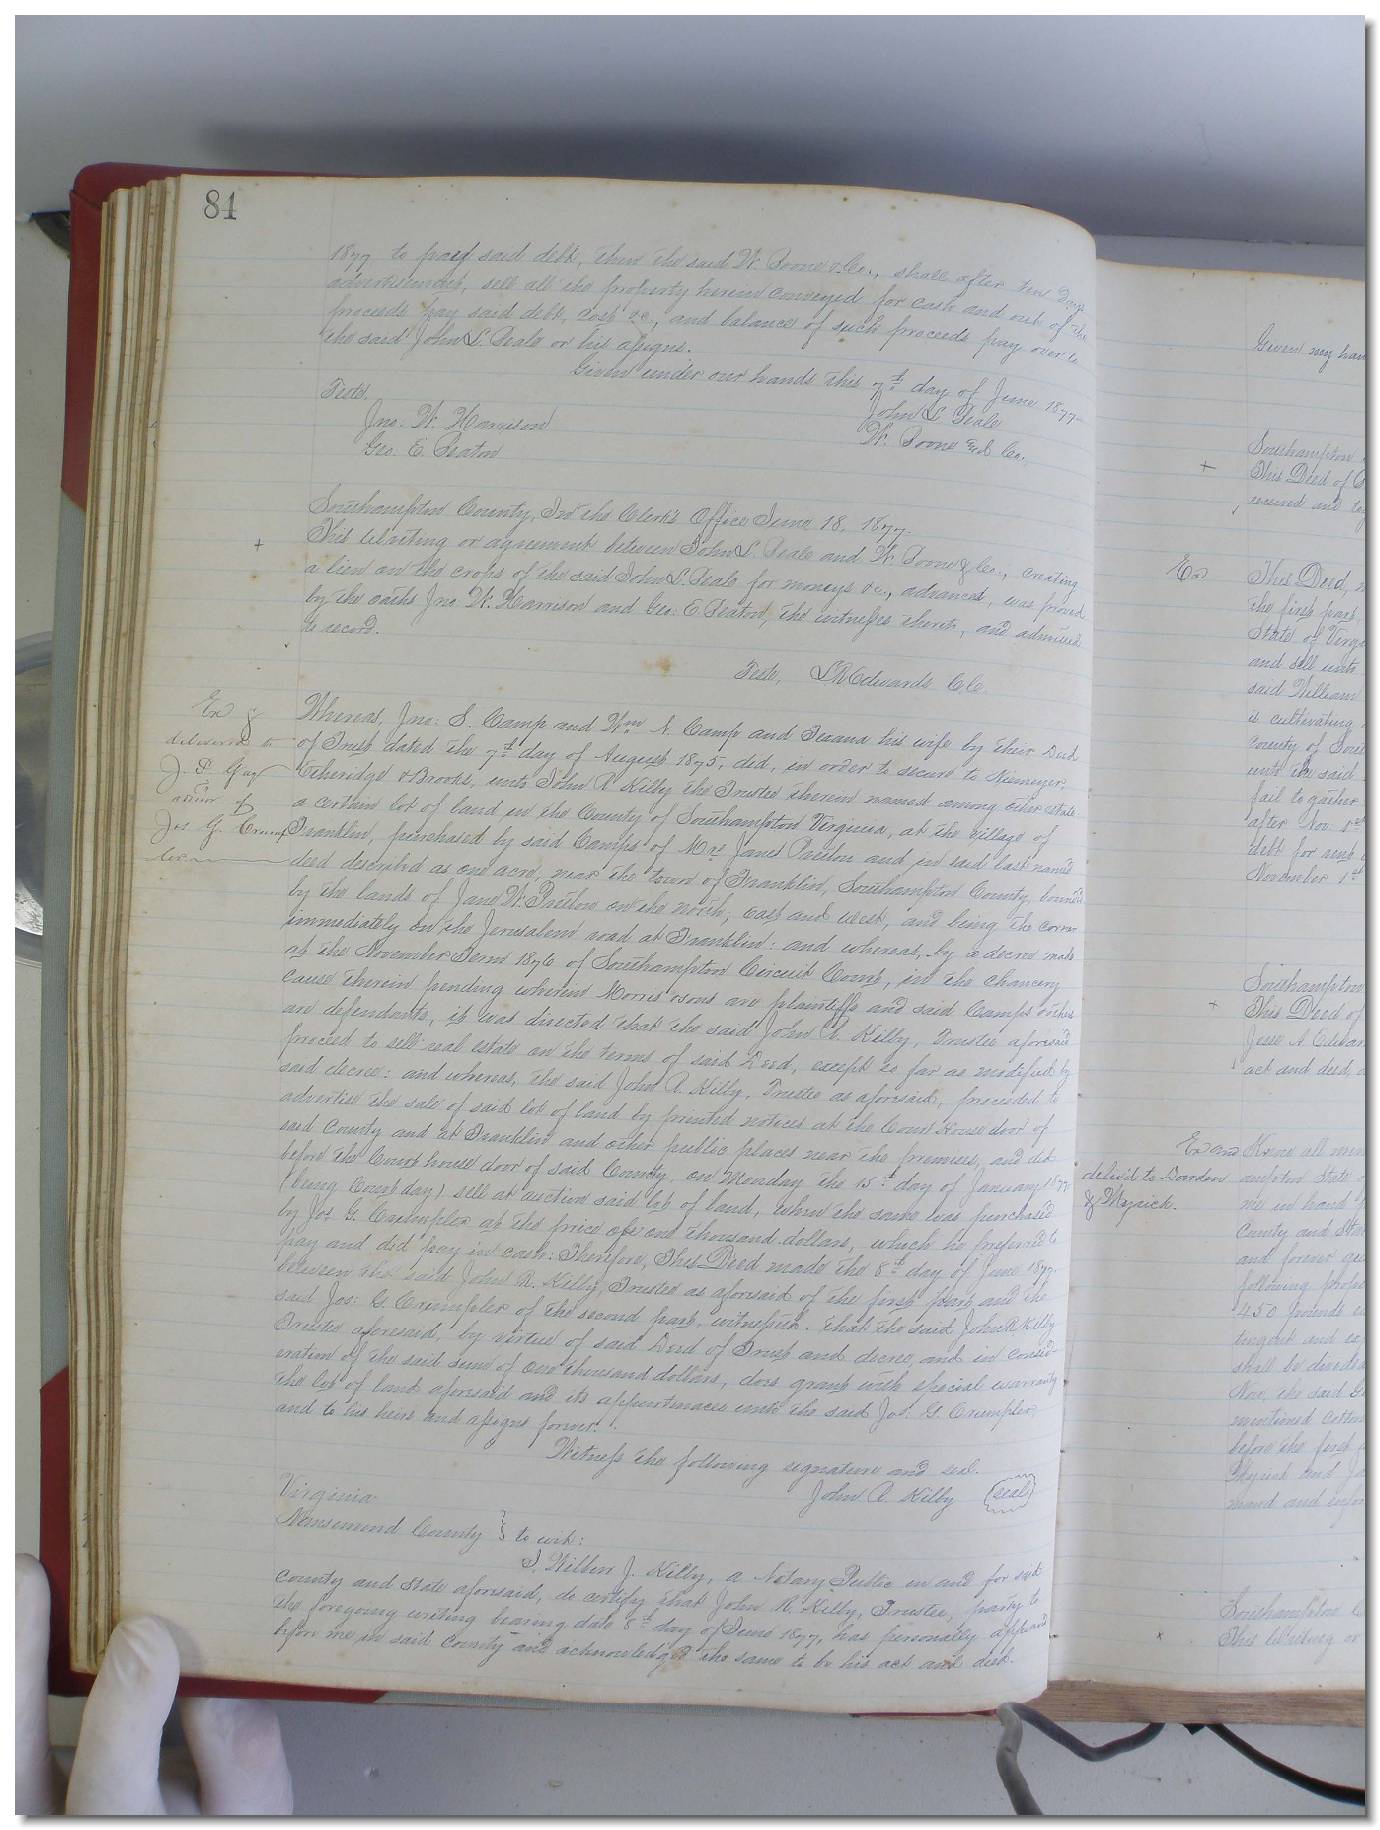 84
1877 to pay said debt, then the said W. Boone & Co., shall after ten days
advertisement, sell all the property herein conveyed for cash and out of the
proceeds pay said debt, cost &c., and balance of such proceeds pay over to
the said John L. Beale or his assigns.
Given under our hands this 7th day of June 1877
Teste.
John L. Beale
Jno. W. Harrison
W. Boone & Co.,
Geo. E. Beaton
Southampton County, In the Clerk's Office June 18, 1877.
This writing or agreement between John L. Beale and W. Boone & Co., creating
a lien on the crops of the said John L. Beale for moneys &c., advanced, was proved
by the oaths Jno. W. Harrison and Geo. E. Beaton, the witnesses thereto, and admitted
to record.
Teste, L.R. Edwards C.C.
Ex &
delivered to
J. P. Gay
of
Jos G. Crump
ler
Whereas, Jno: S. Camp and Wm N. Camp and Texana his wife by their Deed
of Trust dated the 7th day of August 1875, did, in order to secure to Niemeyer,
Etheridge & Brooks, unto John R Kilby the Trustee therein named among other estate
a certain lot of land in the County of Southampton Virginia, at the village of
Franklin, purchased by said Camps of Mrs Janet Preston and in said last named
deed described as one acre, near the town of Franklin, Southampton County, bounded
by the lands of Jane W. Preston on the north, east and west, and being the corner
immediately on the Jerusalem road at Franklin: and whereas, by a decree made
at the November Term 1876 of Southampton Circuit Court, in the chancery
cause therein pending wherein Morris & sons are plaintiffs and said Camps & others
are defendants, it was directed that the said John R. Kilby, Trustee aforesaid
proceed to sell real estate on the terms of said Deed, except so far as modified by
said decree: and whereas, the said John R. Kilby, Trustee as aforesaid, proceeded to
advertise the sale of said lot of land by printed notices at the Court House door of
said County and at Franklin and other public places near the premises, and did
before the Court house door of said County, on Monday the 15th day of January 1877
(being Court day) sell at auction said lot of land, when the same was purchased
by Jos G. Crumpler at the price of one thousand dollars, which he preferred to
pay and did pay in cash: Therefore, This Deed made the 8th day of June 1877
between the said John R. Kilby, Trustee as aforesaid of the first part and the
said Jos: G. Crumpler of the second part, witnesseth. That the said John R Kilby
Trustee aforesaid, by virtue of said Deed of Trust and decree, and in consid-
eration of the said sum of one thousand dollars, does grant with special warranty
the lot of land aforesaid and its appurtenances unto the said Jos: G. Crumpler,
and to his heirs and assigns forever.
Witness the following signature and seal.
John R. Kilby (seal)
Virginia
Nansemond County } to wit:
I, Wilbur J. Kilby, a Notary Public in and for said
County and State aforesaid, do certify that John R. Kilby, Trustee, party to
the foregoing writing bearing date 8th day of June 1877, has personally appeared
before me in said County and acknowledged the same to be his act and deed.
Given my han
Southampton
This Deed of
received and
Ex
This Deed, m
the first part,
State of Virgi
and sell unto
said William
is cultivating
County of Sout
unto the said
fail to gather
after Nov. 1st
debt for
November 1st
Southampton
This Deed of
Jesse A Edwar
act and deed,
Ex and
deliv'd to Dardon
& Myrick.
Know all men
ampton State
me in hand
County and Sta
and forever
following prop
450 pounds
shall be divided
Now, the said
mentioned cotton
before the first
Myrick and
mand and
Southampton
This Writing or